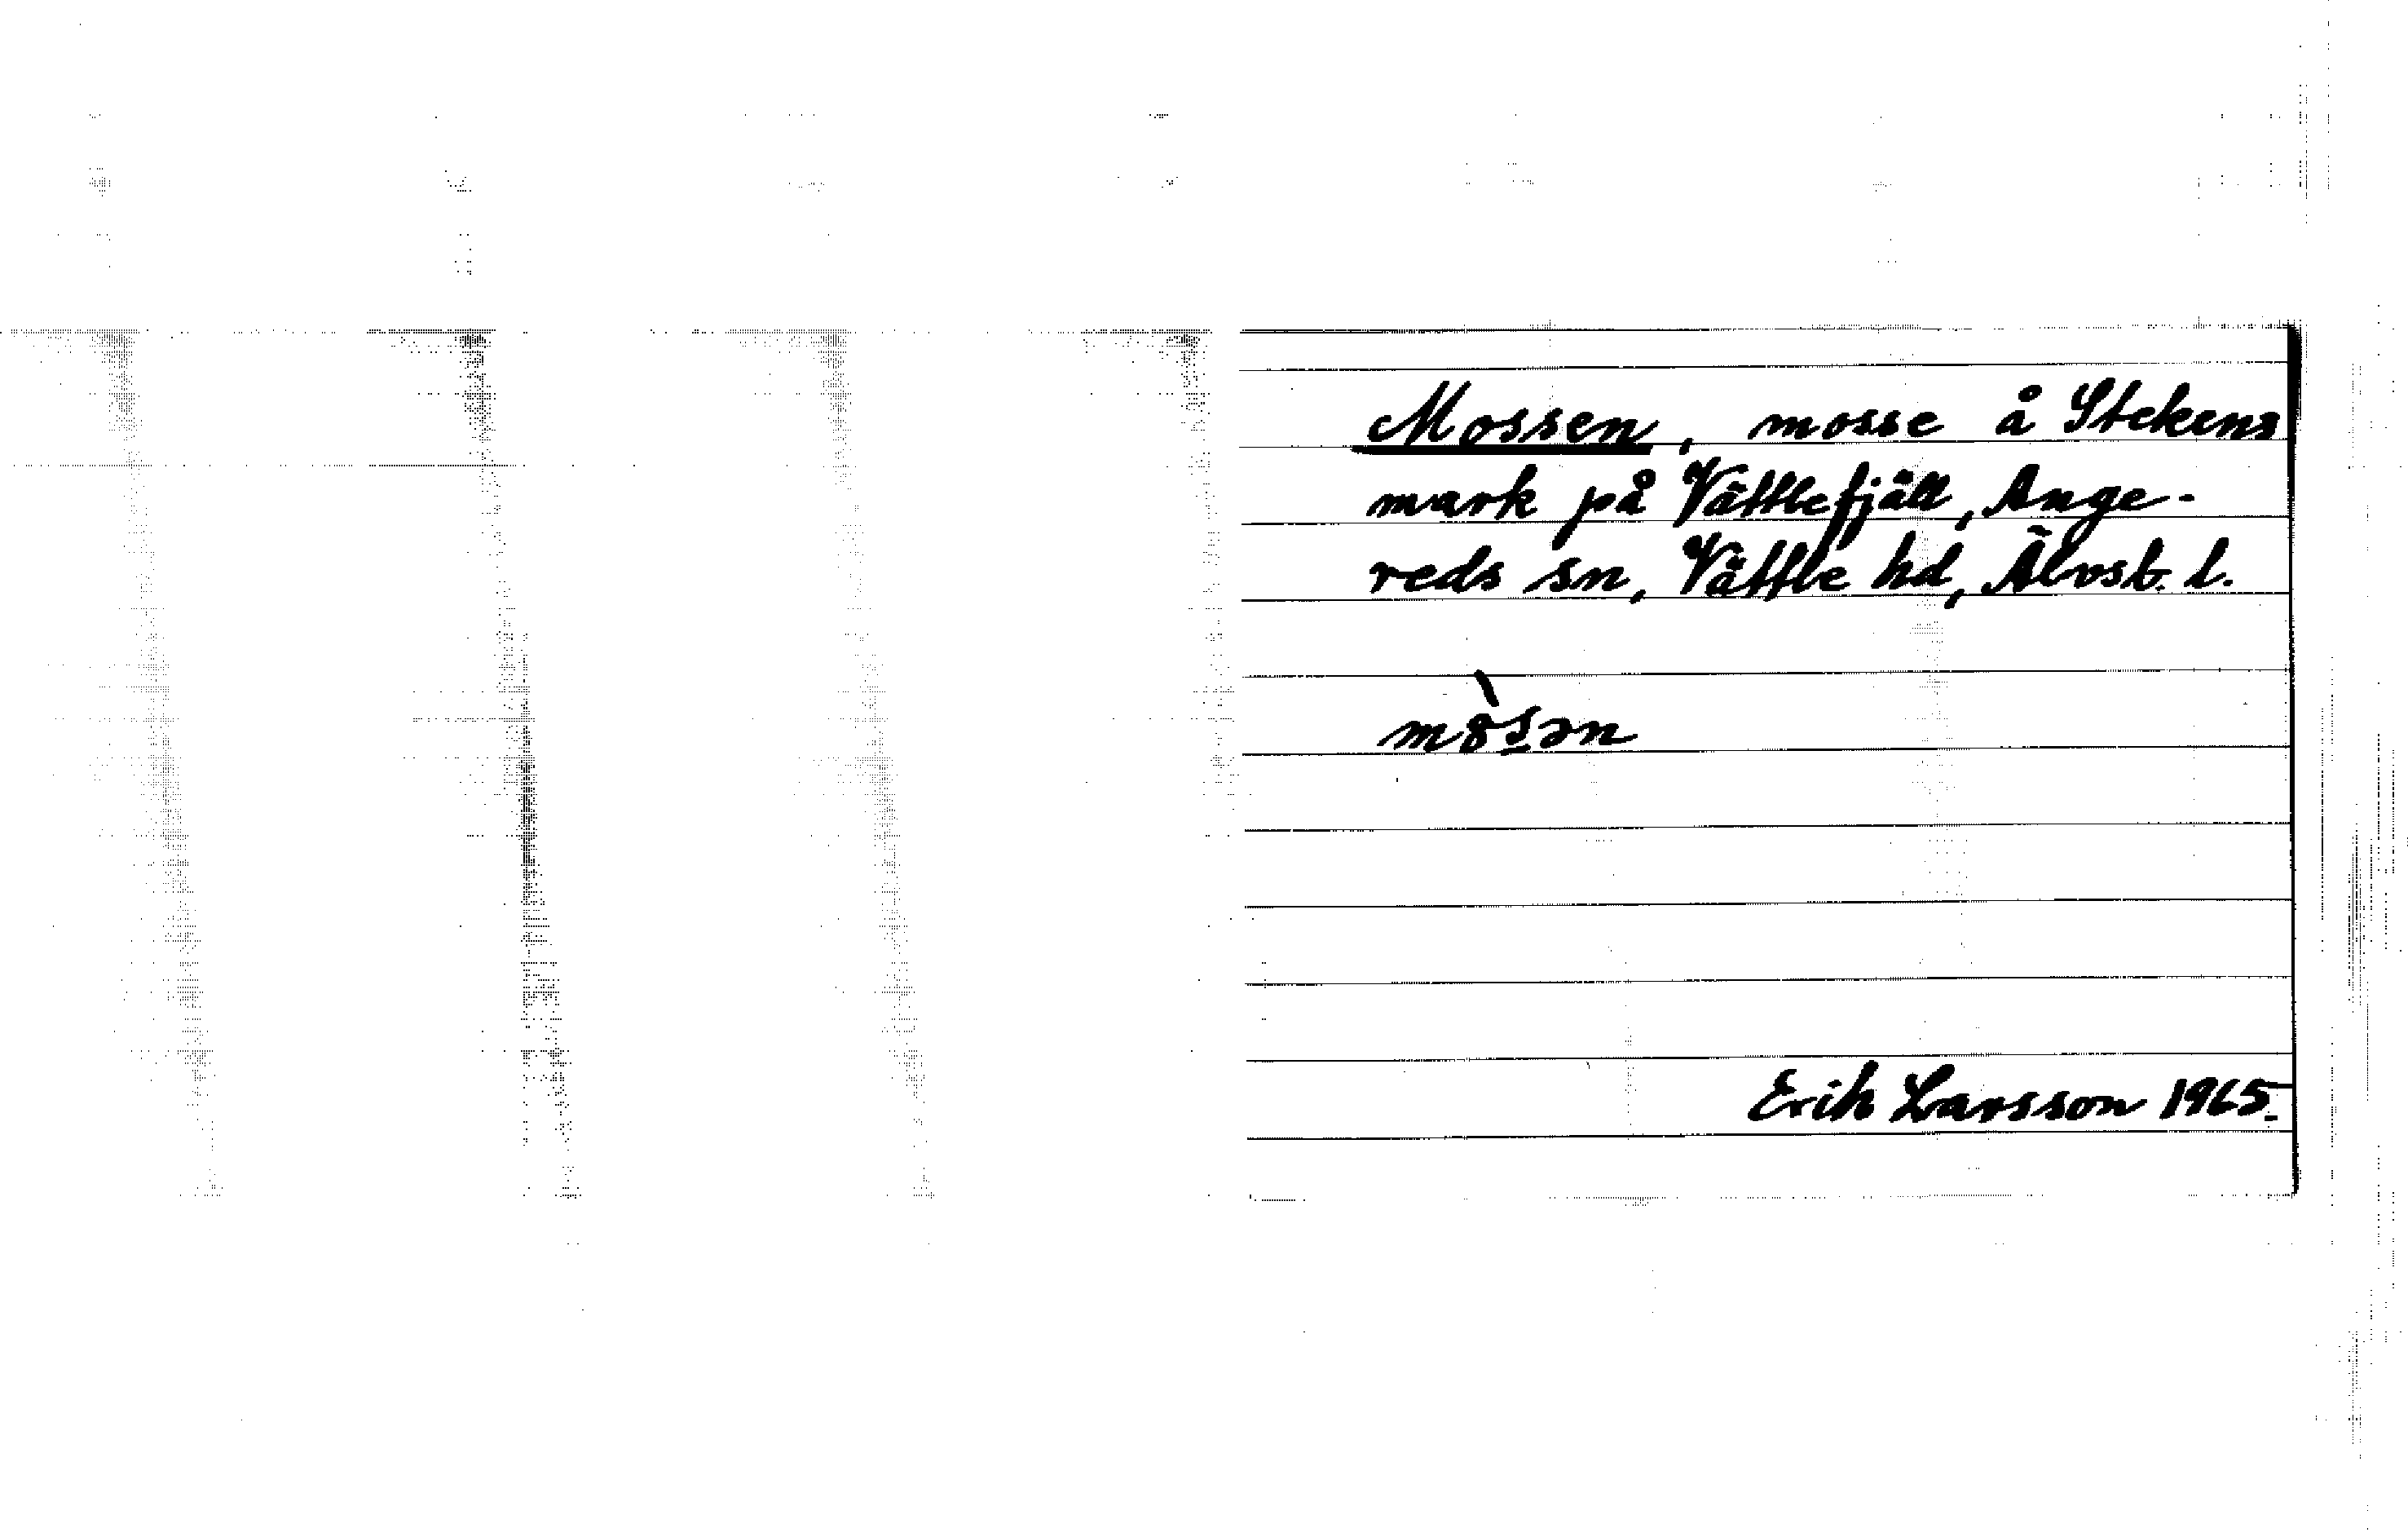 Mossen, mosse å Stekens
mark på Vättlefjäll, Ange-
reds sn, Vättle hd, Älvsb. l.
mò̀s̱ən
Erik Larsson 1965.